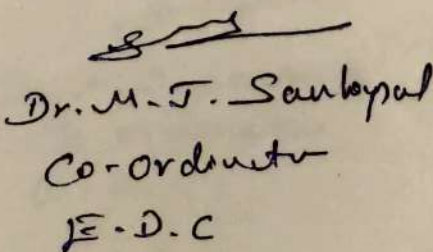 Dr. M. J. Sankpal
Co-ordinator
E.D.C